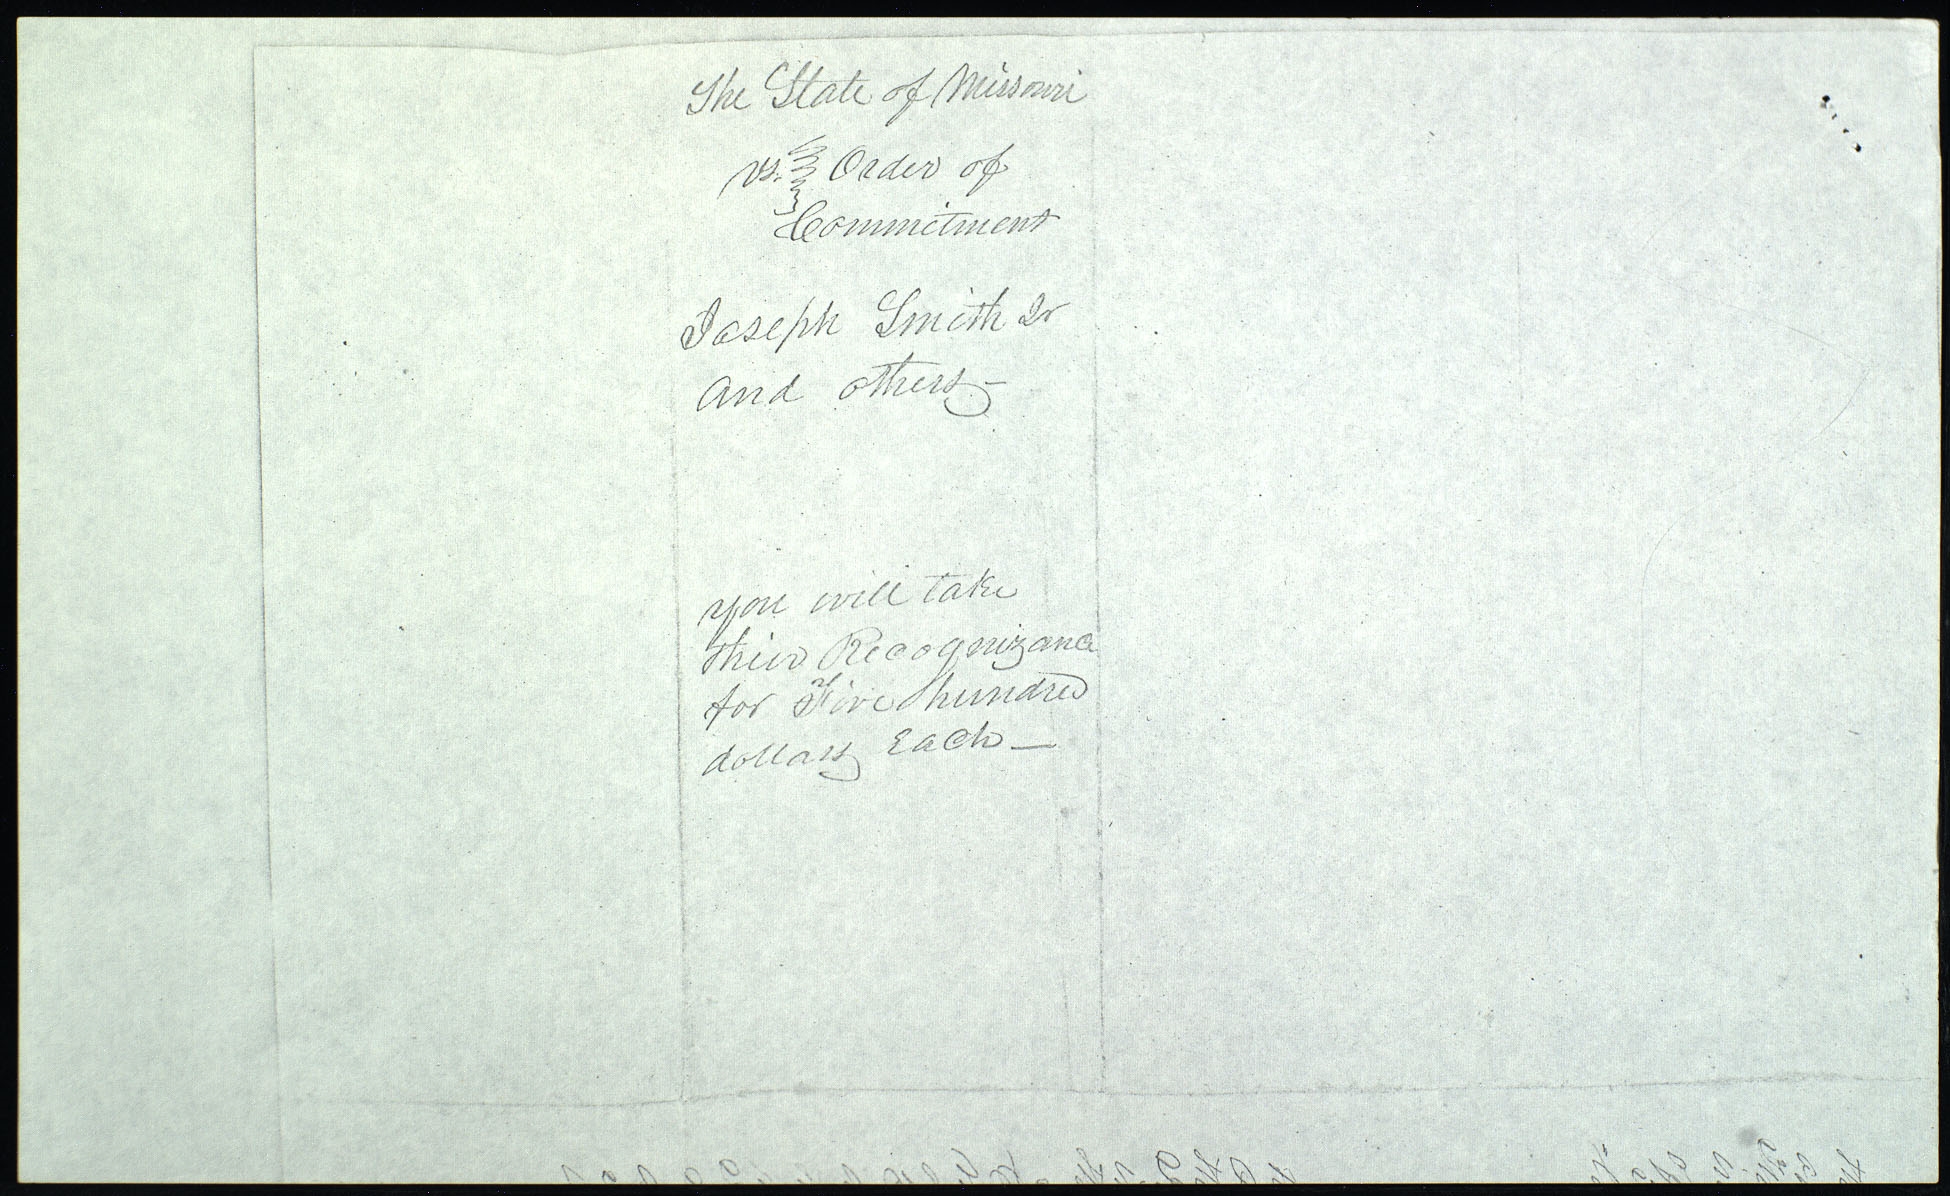 The State of Missouri
vs. Order of
Commitment
Joseph Smith Jr
and others—
you will take
their Recognizance
for Five hundred
dollars Each—